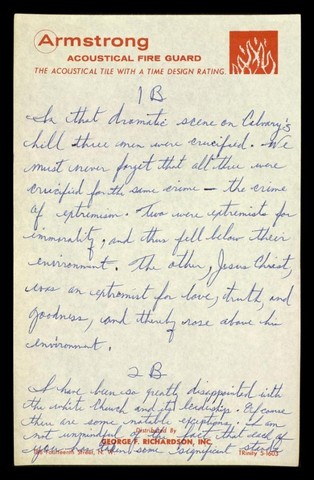 Armstrong
ACOUSTICAL FIRE GUARD
THE ACOUSTICAL TILE WITH A TIME DESIGN RATING.
1 B
In that dramatic scene on Calvary's
hill three men were crucified. We
must never forget that all three were
crucified for the same crime — the crime
of extremism. Two were extremists for
immorality, and thus fell below their
environment. The other, Jesus Christ,
was an extremist for love, truth, and
goodness, and thereby rose above his
environment.
2 B
I have been so greatly disappointed with
the white church and its leadership. Of course
there are some notable exceptions. I am
Distributed By
not unmindful of the fact that each of
GEORGE F. RICHARDSON, INC.
you has taken some significant stands
Fourteenth Street, N. W. TRinity 5-1603